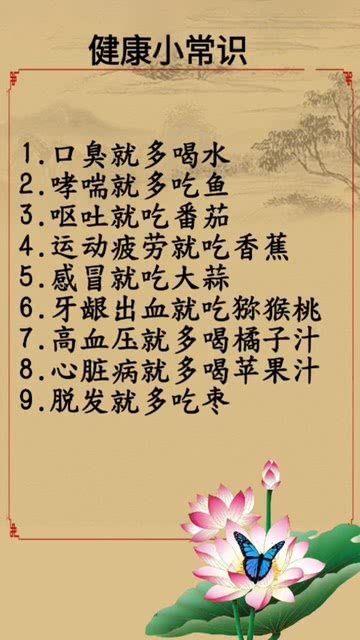 健康小常识
1.口臭就多喝水
2.哮喘就多吃鱼
3.呕吐就吃番茄
4.运动疲劳就吃香蕉
5.感冒就吃大蒜
6.牙龈出血就吃猕猴桃
7.高血压就多喝橘子汁
8.心脏病就多喝苹果汁
9.脱发就多吃枣